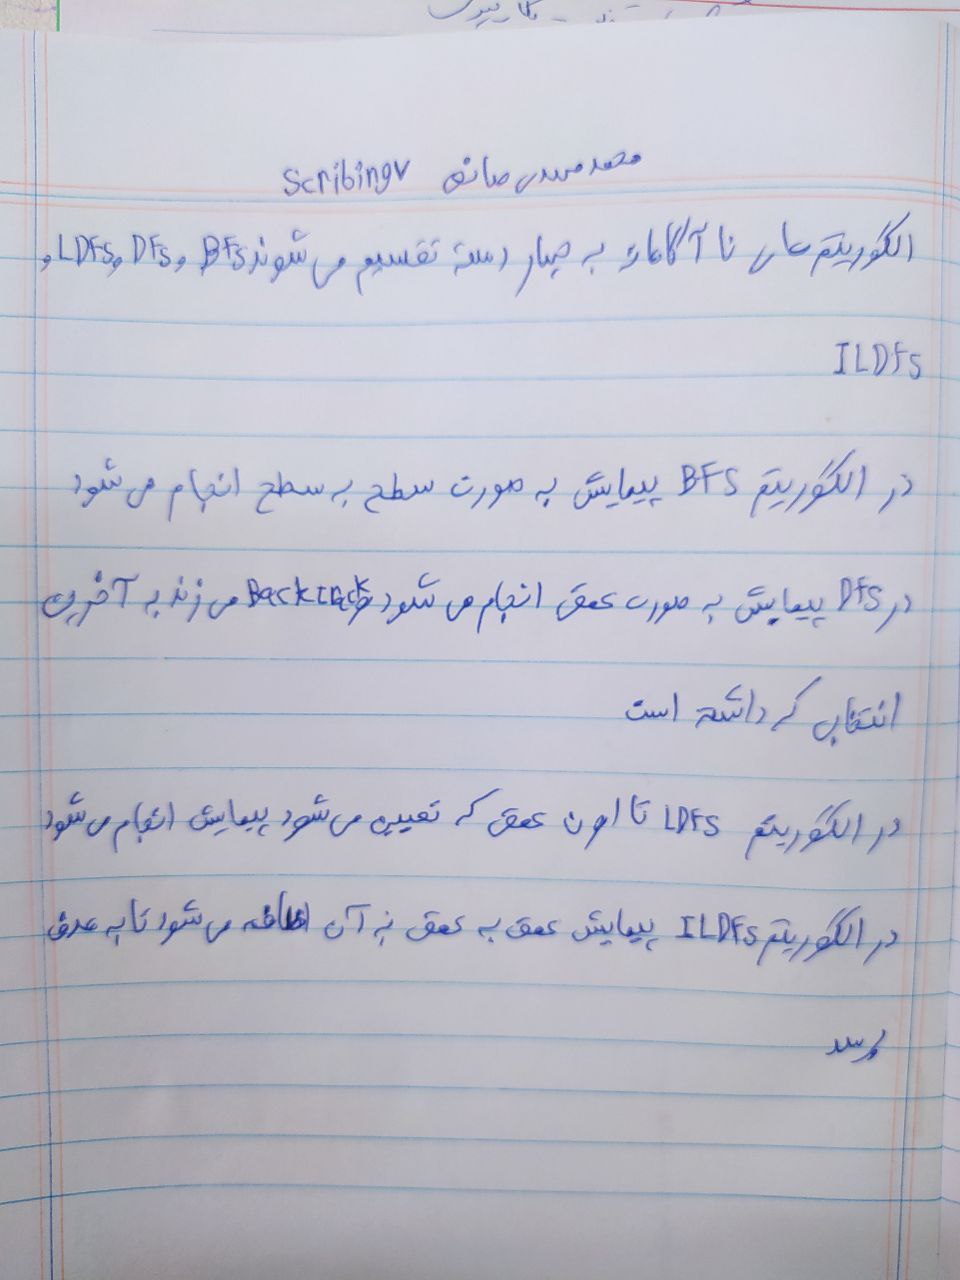 محمد مهدی صانعی Scribing7
الگوریتم های نا آگاهانه به چهار دسته تقسیم می شوند BFS و DFS و LDFS و
ILDFS
در الگوریتم BFS پیمایش به صورت سطح به سطح انجام می شود
در DFS پیمایش به صورت عمقی انجام می شود و Backtrack می زند به آخرین
انتخابی که داشته است
در الگوریتم LDFS تا اون عمقی که تعیین می شود پیمایش انجام می شود
در الگوریتم ILDFS پیمایش عمق به عمق به آن اضافه می شود تا به هدف
برسد